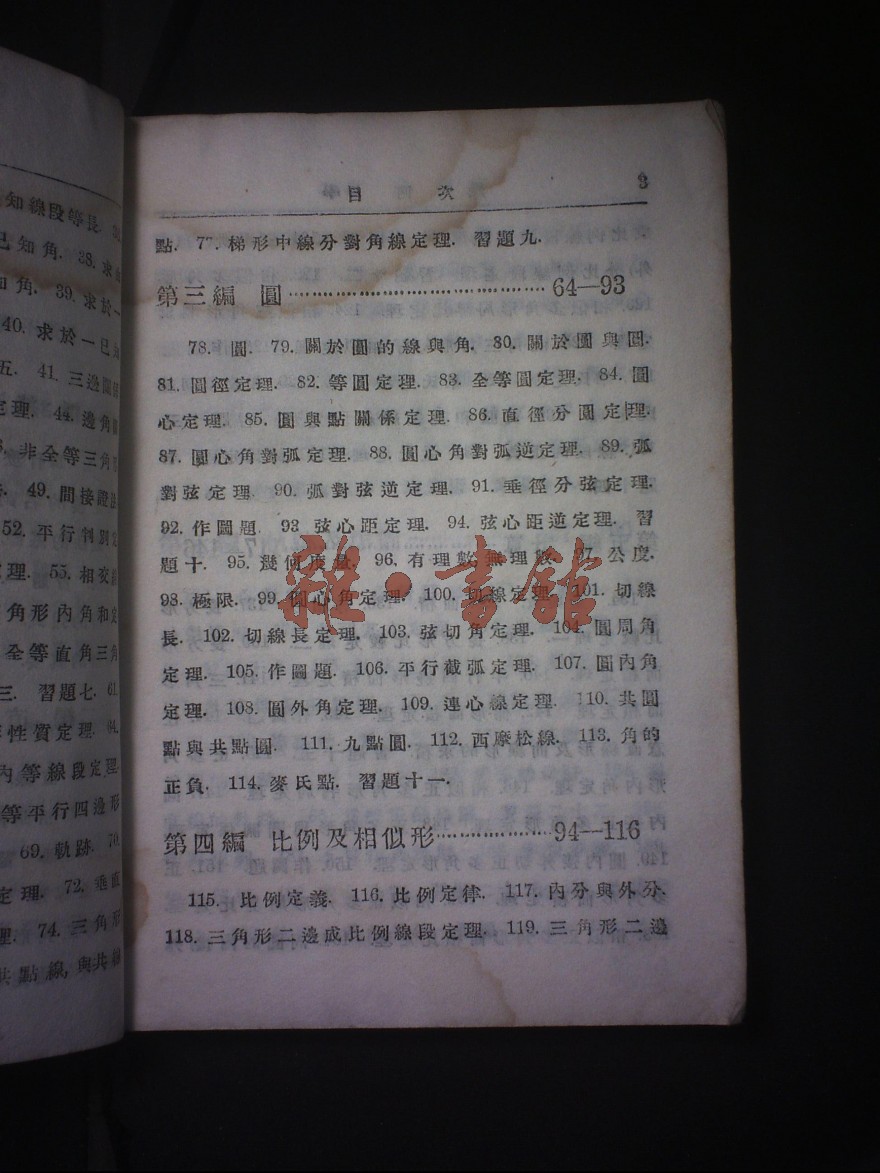 知線段等長.
已知角. 38. 求
知角. 39. 求於一
40. 求於一已
五. 41. 三邊
定理. 44. 邊角
非全等三角
49. 間接證法
52. 平行判別定
理. 55. 相交
角形內角和定
全等直角三角
三. 習題七. 61.
性質定理. 64.
內等線段定理
等平行四邊形
69. 軌跡. 70.
定理. 72. 垂直
理. 74. 三角形
共點線,與共線
目 次 3
點. 77. 梯形中線分對角線定理. 習題九.
第三編 圓 64—93
78. 圓. 79. 關於圓的線與角. 80. 關於圓與圓.
81. 圓徑定理. 82. 等圓定理. 83. 全等圓定理. 84. 圓
心定理. 85. 圓與點關係定理. 86. 直徑分圓定理.
87. 圓心角對弧定理. 88. 圓心角對弧逆定理. 89. 弧
對弦定理. 90. 弧對弦逆定理. 91. 垂徑分弦定理.
92. 作圖題. 93 弦心距定理. 94. 弦心距逆定理. 習
題十. 95. 幾何度量. 96. 有理數無理數. 97. 公度.
98. 極限. 99. 圓心角定理. 100. 切線定理. 101. 切線
長. 102. 切線長定理. 103. 弦切角定理. 104. 圓周角
定理. 105. 作圖題. 106. 平行截弧定理. 107. 圓內角
定理. 108. 圓外角定理. 109. 連心線定理. 110. 共圓
點與共點圓. 111. 九點圓. 112. 西摩松線. 113. 角的
正負. 114. 麥氏點. 習題十一.
第四編 比例及相似形 94—116
115. 比例定義. 116. 比例定律. 117. 內分與外分.
118. 三角形二邊成比例線段定理. 119. 三角形二邊
雜·書館